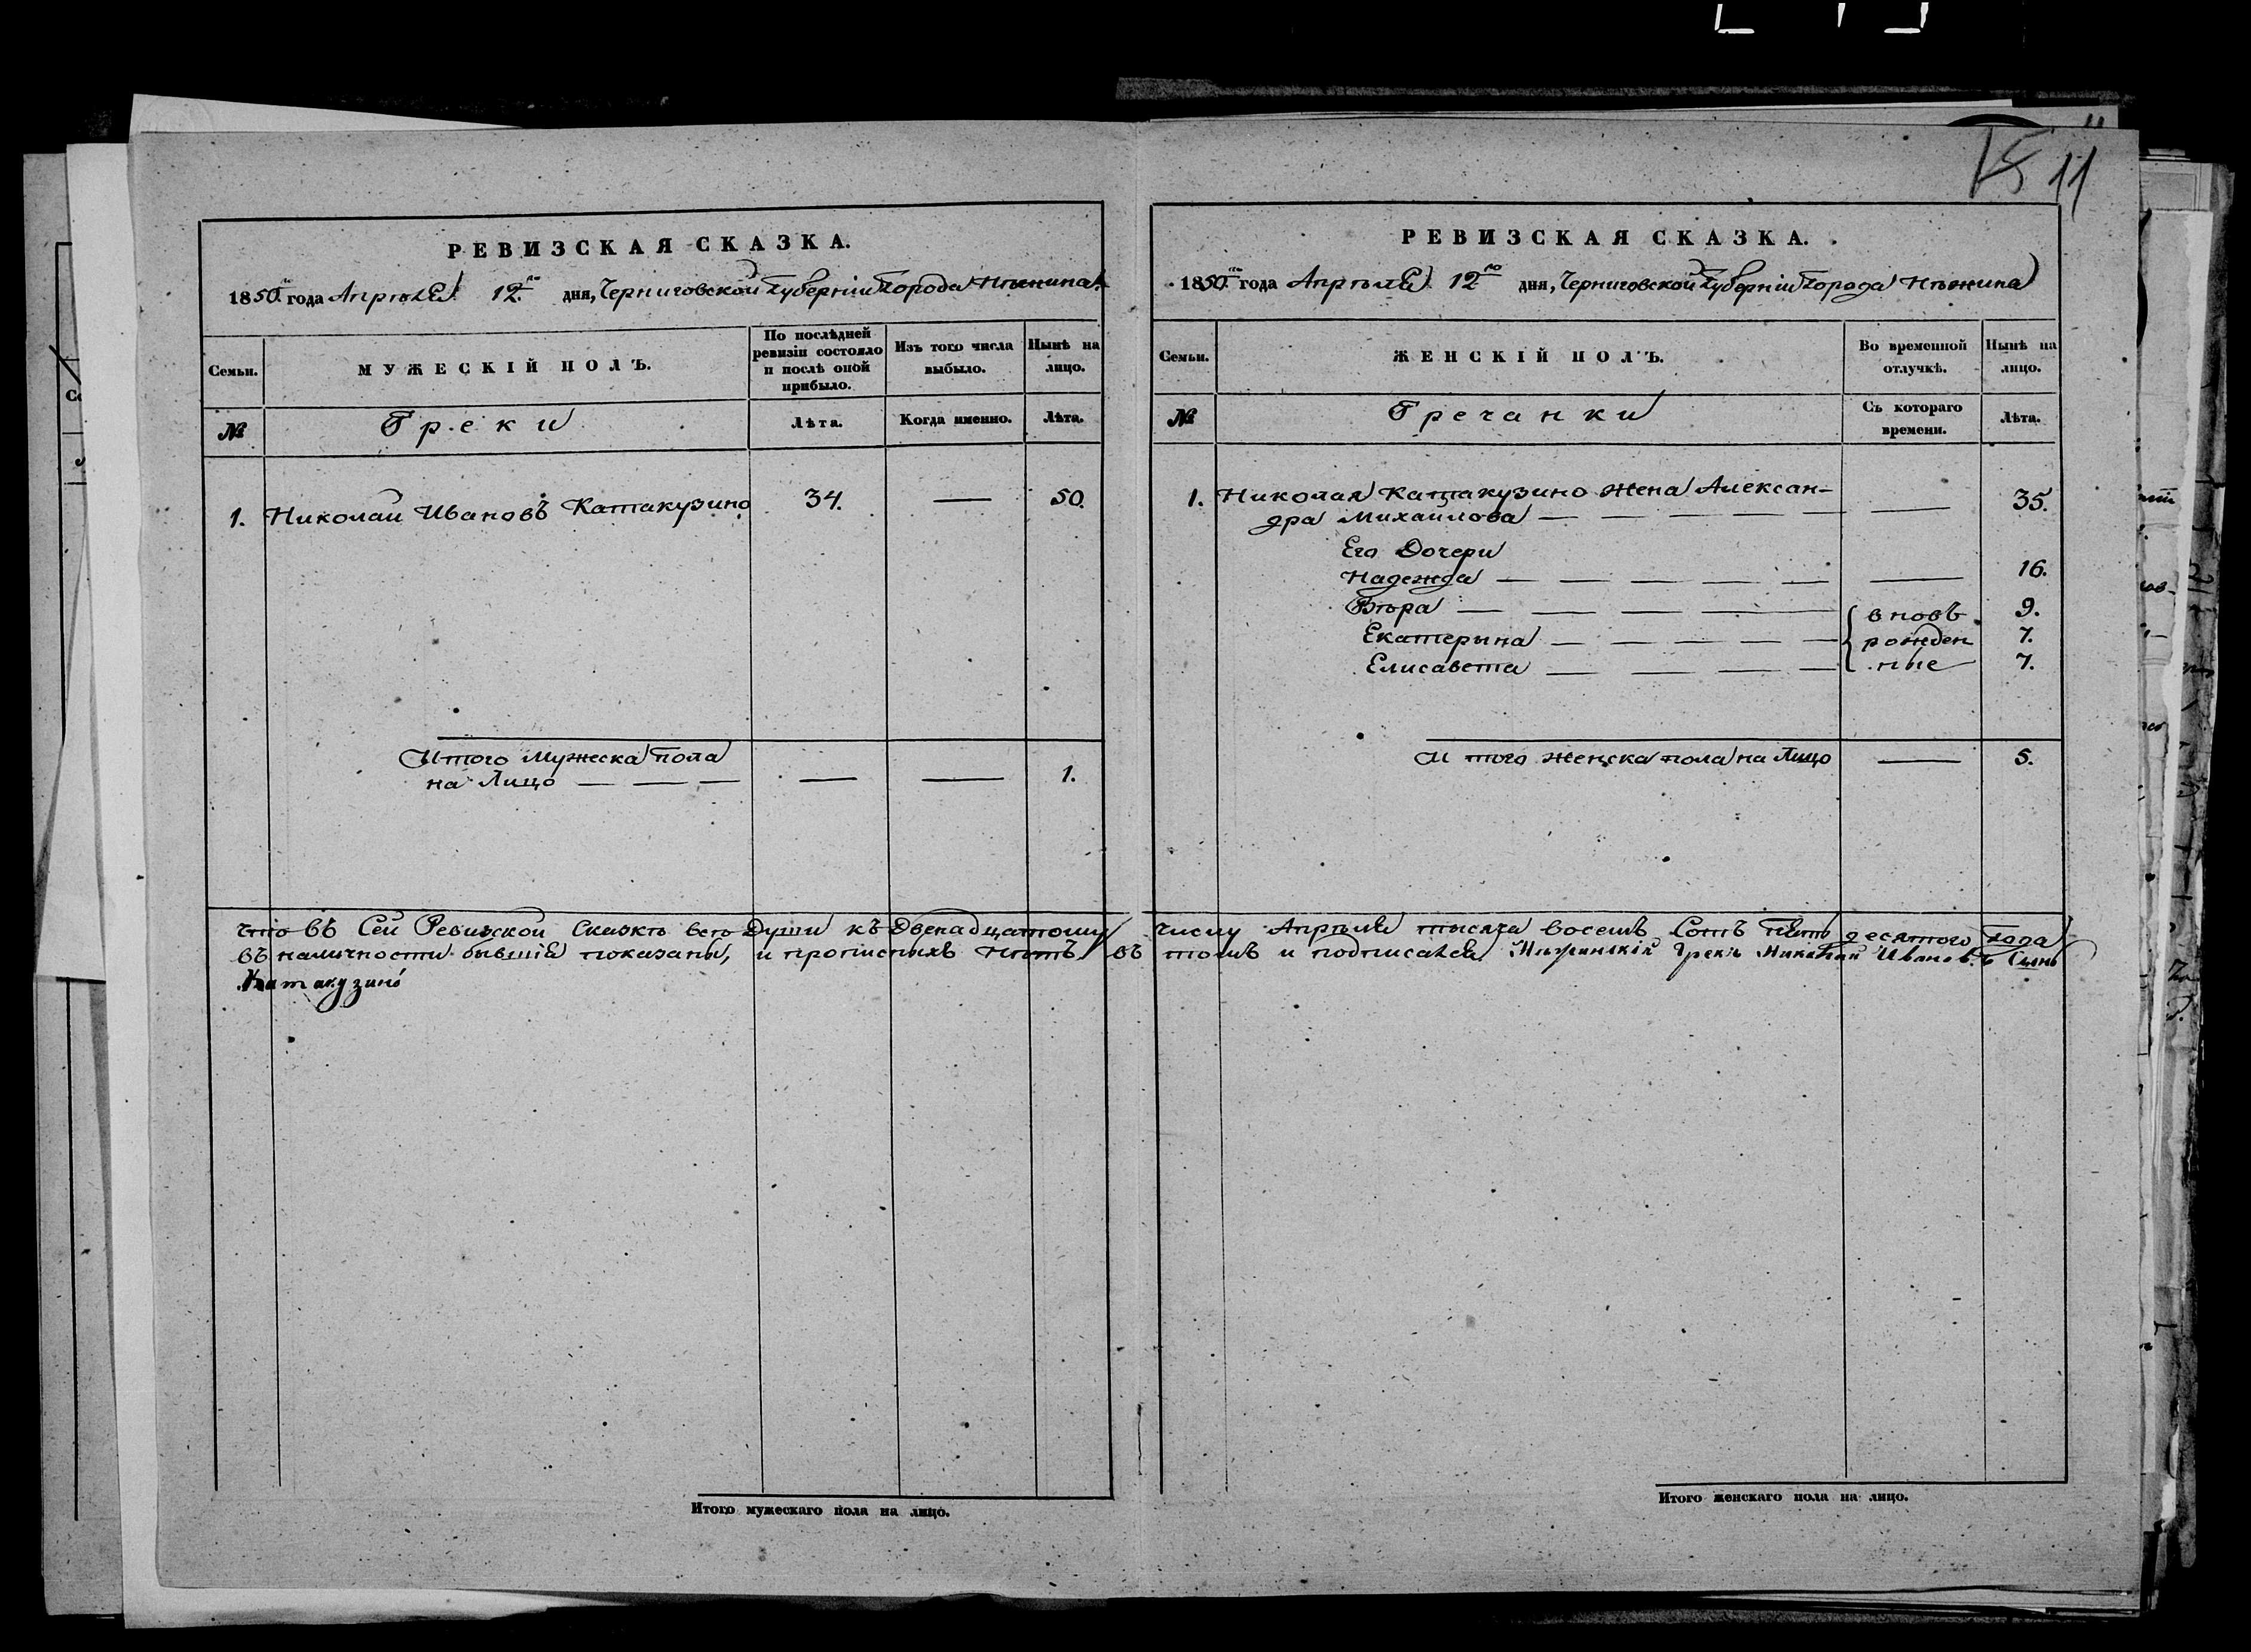 15 11
РЕВИЗСКАЯ СКАЗКА.
1850.го года Апрѣля 12.го дня, Черниговской Губерніи города Нѣжина.
Семьи.
МУЖЕСКІЙ ПОЛЪ.
По послѣдней ревизіи состояло и послѣ оной прибыло.
Изъ того числа выбыло.
Нынѣ на лицо.
№
Греки
Лѣта.
Когда именно.
Лѣта.
1. Николай Ивановъ Катакузино 34. — 50.
Итого Мужеска пола
на Лицо — — — — — 1.
РЕВИЗСКАЯ СКАЗКА.
1850.го года Апрѣля 12го дня, Черниговской Губерніи города Нѣжина
Семьи.
ЖЕНСКІЙ ПОЛЪ.
Во временной отлучкѣ.
Нынѣ на лицо.
№
Гречанки
Съ котораго времени.
Лѣта.
1. Николая Катакузино жена Алексан-
дра Михайлова — — — — — — 35.
Его Дочери
Надежда — — — — — — 16.
Вѣра — — — — — вновь 9.
Екатерына — — — — рожден 7.
Елисавета — — — ные 7.
И того женска пола на Лицо — 5.
что въ Сей Ревизской Сказкѣ всѣ Души къ Двенадцатому числу Апрѣля тысяча восемь Сотъ пять десятого года
въ наличности бывшія показаны, и прописныхъ нѣтъ, въ томъ и подписался Нѣжинскій Грекъ Николай Ивановъ Сынъ
Катакузино
Итого мужескаго пола на лицо.
Итого женскаго пола на лицо.